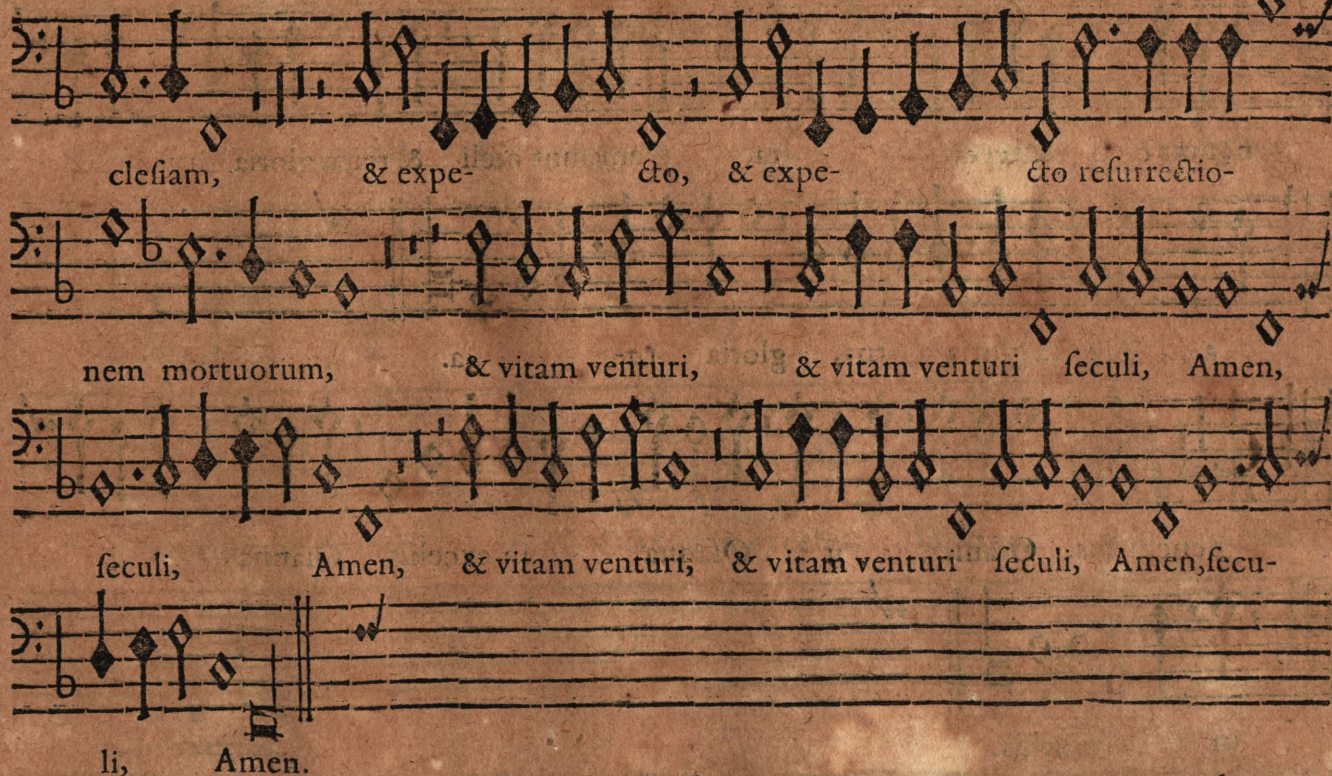 cleſiam, & expe- cto, & expe- cto reſurrectio-
nem mortuorum, & vitam venturi, & vitam venturi ſeculi, Amen,
ſeculi, Amen, & vitam venturi, & vitam venturi ſeculi, Amen, ſecu-
li, Amen.